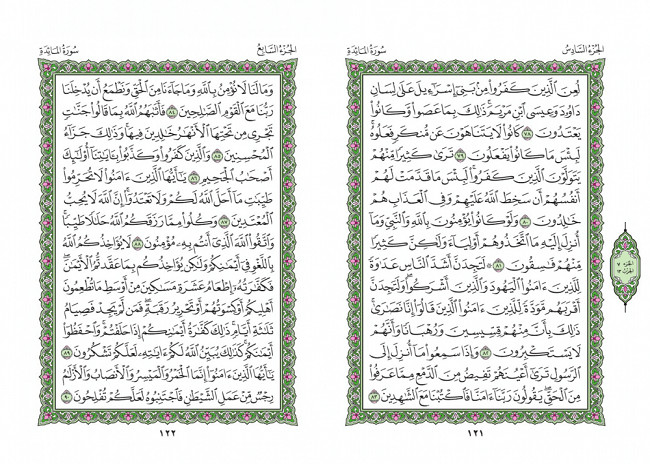 الجزء السادس
سورة المائدة
لُعِنَ ٱلَّذِينَ كَفَرُوا۟ مِنۢ بَنِىٓ إِسْرَٰٓءِيلَ عَلَىٰ لِسَانِ
دَاوُۥدَ وَعِيسَى ٱبْنِ مَرْيَمَ ۚ ذَٰلِكَ بِمَا عَصَوا۟ وَّكَانُوا۟
يَعْتَدُونَ ٧٨ كَانُوا۟ لَا يَتَنَاهَوْنَ عَن مُّنكَرٍ فَعَلُوهُ ۚ
لَبِئْسَ مَا كَانُوا۟ يَفْعَلُونَ ٧٩ تَرَىٰ كَثِيرًا مِّنْهُمْ
يَتَوَلَّوْنَ ٱلَّذِينَ كَفَرُوا۟ ۚ لَبِئْسَ مَا قَدَّمَتْ لَهُمْ
أَنفُسُهُمْ أَن سَخِطَ ٱللَّهُ عَلَيْهِمْ وَفِى ٱلْعَذَابِ هُمْ
خَٰلِدُونَ ٨٠ وَلَوْ كَانُوا۟ يُؤْمِنُونَ بِٱللَّهِ وَٱلنَّبِىِّ وَمَآ
أُنزِلَ إِلَيْهِ مَا ٱتَّخَذُوهُمْ أَوْلِيَآءَ وَلَٰكِنَّ كَثِيرًا
مِّنْهُمْ فَٰسِقُونَ ٨١ لَتَجِدَنَّ أَشَدَّ ٱلنَّاسِ عَدَٰوَةً
لِّلَّذِينَ ءَامَنُوا۟ ٱلْيَهُودَ وَٱلَّذِينَ أَشْرَكُوا۟ ۖ وَلَتَجِدَنَّ
أَقْرَبَهُم مَّوَدَّةً لِّلَّذِينَ ءَامَنُوا۟ ٱلَّذِينَ قَالُوٓا۟ إِنَّا نَصَٰرَىٰ ۚ
ذَٰلِكَ بِأَنَّ مِنْهُمْ قِسِّيسِينَ وَرُهْبَانًا وَأَنَّهُمْ
لَا يَسْتَكْبِرُونَ ٨٢ وَإِذَا سَمِعُوا۟ مَآ أُنزِلَ إِلَى
ٱلرَّسُولِ تَرَىٰٓ أَعْيُنَهُمْ تَفِيضُ مِنَ ٱلدَّمْعِ مِمَّا عَرَفُوا۟
مِنَ ٱلْحَقِّ ۖ يَقُولُونَ رَبَّنَآ ءَامَنَّا فَٱكْتُبْنَا مَعَ ٱلشَّٰهِدِينَ ٨٣
١٢١
الجزء السابع
سورة المائدة
وَمَا لَنَا لَا نُؤْمِنُ بِٱللَّهِ وَمَا جَآءَنَا مِنَ ٱلْحَقِّ وَنَطْمَعُ أَن يُدْخِلَنَا
رَبُّنَا مَعَ ٱلْقَوْمِ ٱلصَّٰلِحِينَ ٨٤ فَأَثَٰبَهُمُ ٱللَّهُ بِمَا قَالُوا۟ جَنَّٰتٍ
تَجْرِى مِن تَحْتِهَا ٱلْأَنْهَٰرُ خَٰلِدِينَ فِيهَا ۚ وَذَٰلِكَ جَزَآءُ
ٱلْمُحْسِنِينَ ٨٥ وَٱلَّذِينَ كَفَرُوا۟ وَكَذَّبُوا۟ بِـَٔايَٰتِنَآ أُو۟لَٰٓئِكَ
أَصْحَٰبُ ٱلْجَحِيمِ ٨٦ يَٰٓأَيُّهَا ٱلَّذِينَ ءَامَنُوا۟ لَا تُحَرِّمُوا۟
طَيِّبَٰتِ مَآ أَحَلَّ ٱللَّهُ لَكُمْ وَلَا تَعْتَدُوٓا۟ ۚ إِنَّ ٱللَّهَ لَا يُحِبُّ
ٱلْمُعْتَدِينَ ٨٧ وَكُلُوا۟ مِمَّا رَزَقَكُمُ ٱللَّهُ حَلَٰلًا طَيِّبًا ۚ
وَٱتَّقُوا۟ ٱللَّهَ ٱلَّذِىٓ أَنتُم بِهِۦ مُؤْمِنُونَ ٨٨ لَا يُؤَاخِذُكُمُ ٱللَّهُ
بِٱللَّغْوِ فِىٓ أَيْمَٰنِكُمْ وَلَٰكِن يُؤَاخِذُكُم بِمَا عَقَّدتُّمُ ٱلْأَيْمَٰنَ ۖ
فَكَفَّٰرَتُهُۥٓ إِطْعَامُ عَشَرَةِ مَسَٰكِينَ مِنْ أَوْسَطِ مَا تُطْعِمُونَ
أَهْلِيكُمْ أَوْ كِسْوَتُهُمْ أَوْ تَحْرِيرُ رَقَبَةٍ ۖ فَمَن لَّمْ يَجِدْ فَصِيَامُ
ثَلَٰثَةِ أَيَّامٍ ۚ ذَٰلِكَ كَفَّٰرَةُ أَيْمَٰنِكُمْ إِذَا حَلَفْتُمْ ۚ وَٱحْفَظُوٓا۟
أَيْمَٰنَكُمْ ۚ كَذَٰلِكَ يُبَيِّنُ ٱللَّهُ لَكُمْ ءَايَٰتِهِۦ لَعَلَّكُمْ تَشْكُرُونَ ٨٩
يَٰٓأَيُّهَا ٱلَّذِينَ ءَامَنُوٓا۟ إِنَّمَا ٱلْخَمْرُ وَٱلْمَيْسِرُ وَٱلْأَنصَابُ وَٱلْأَزْلَٰمُ
رِجْسٌ مِّنْ عَمَلِ ٱلشَّيْطَٰنِ فَٱجْتَنِبُوهُ لَعَلَّكُمْ تُفْلِحُونَ ٩٠
١٢٢